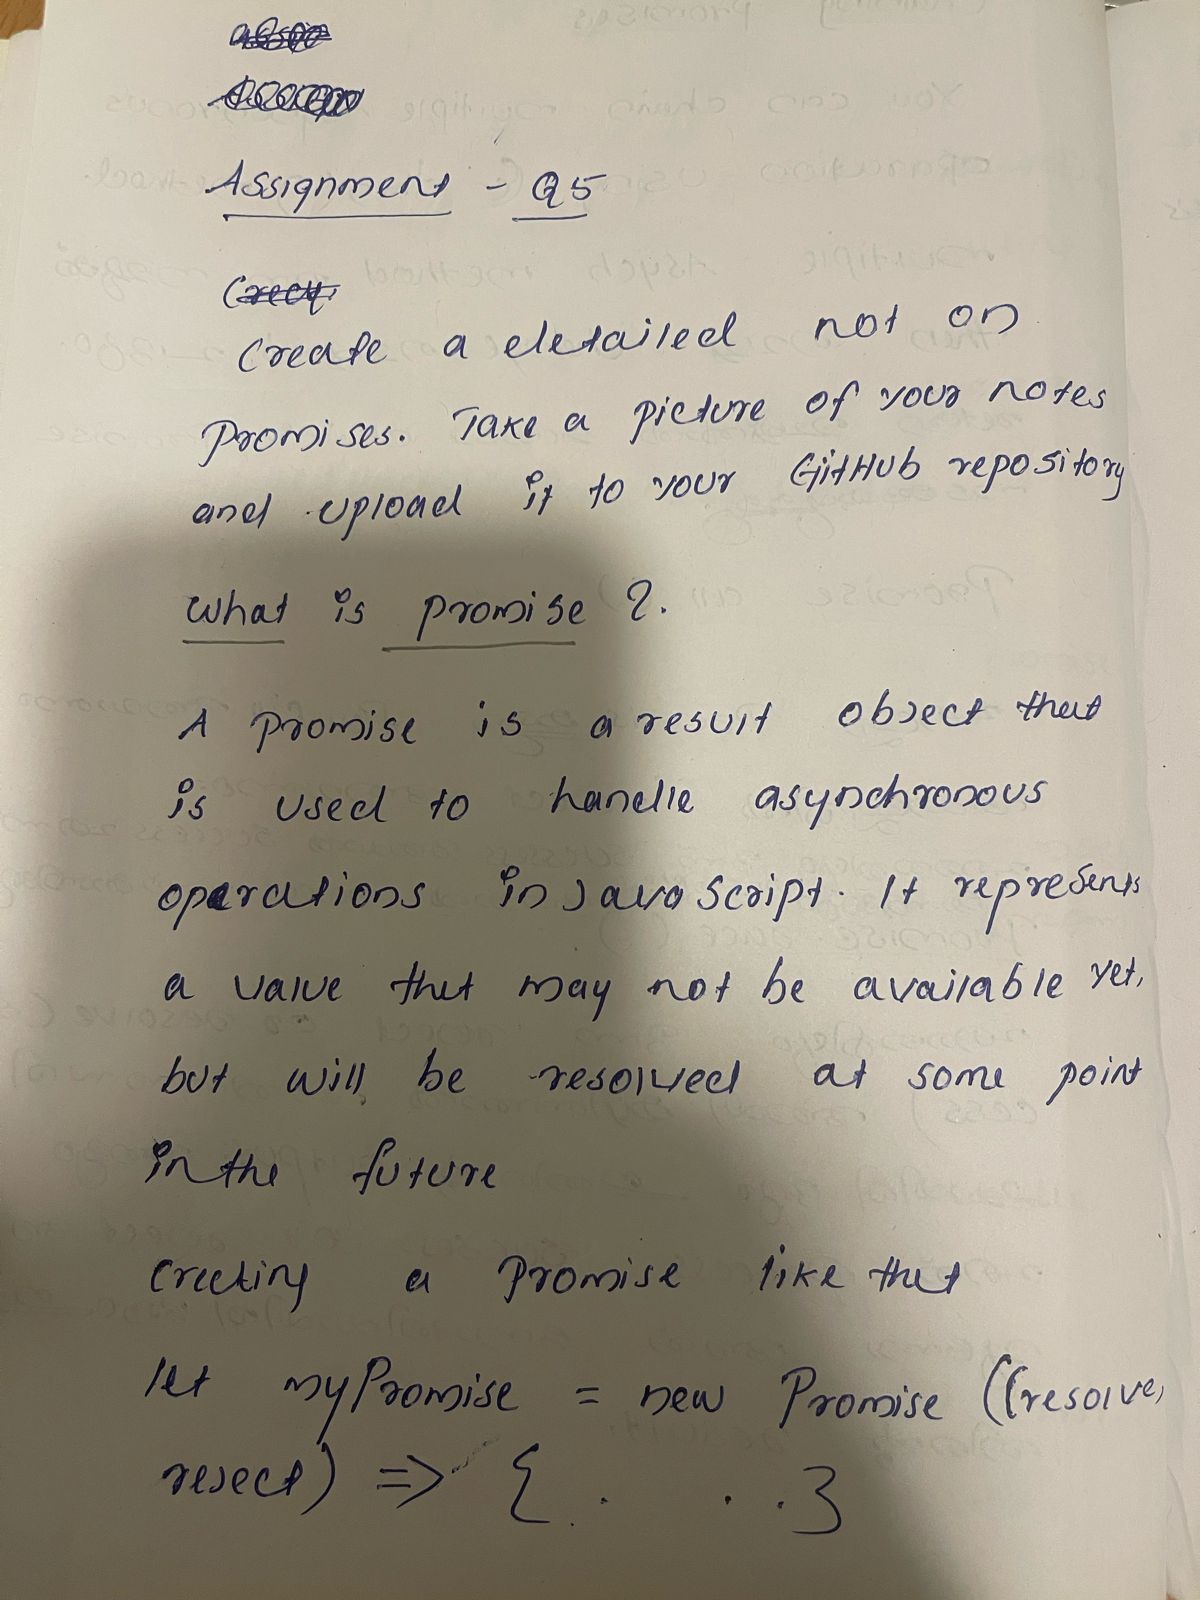 Assignment - Q5
Create a detailed not on
Promises. Take a picture of your notes
and upload it to your GitHub repository
What is promise ?.
A promise is a result object that
is used to handle asynchronous
operations in JavaScript. It represents
a value that may not be available yet,
but will be resolved at some point
in the future
Creating a Promise like that
let myPromise = new Promise ((resolve,
reject) => { . . . }